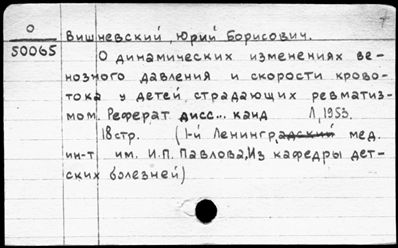 7
О
50065
Вишневский, Юрий Борисович.
О динамических изменениях ве-
нозного давления и скорости крово-
тока у детей, страдающих ревматиз-
мом. Реферат дисс... канд Л, 1953.
18стр. (1-й Ленинградский мед.
ин-т им. И.П. Павлова, Из кафедры дет-
ских болезней)